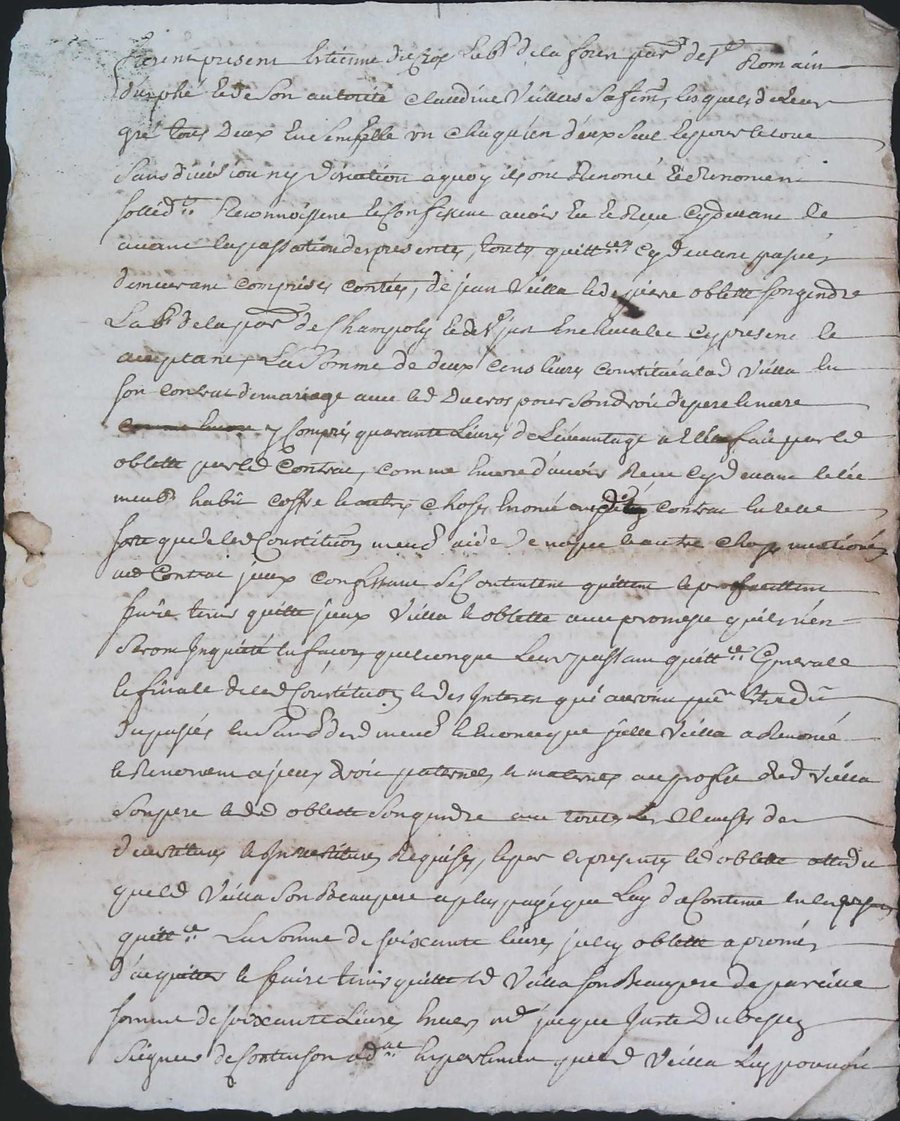 furent present Estienne ducros Lab.r de la foren par.se de s.t Romain
durphé & de son autorité claudine Veillas sa fem.e, lesquels de leur
gré tous deux Ensemble un chaqu'un d'eux seul & pour le tout
sans division ny discution a quoy ils ont Renoncé & Renoncent
sollid.t Reconnoissent & Confessent avoir Eu & Reçu cydevant &
avant la passation des presentes, touts quitt.ces cydevant passés
demeurant comprises contées, de jean Veilla & de pierre oblette son gendre
Lab.r de la par.se de Champoly & de s.t just En chevalet cy present &
acceptant, La somme de deux cens livres constitué a lad Veilla En
son contrat de mariage avec led Ducros pour son droit de pere & mere
y compris quarante Livres d'Eavantage a Elle fait par led
oblette par led Contrat, comme Encore d'avoir Reçu cydevant le
meub habit coffre & autres choses Enoncé contrat En telle
sorte que de lad Constitution meub de nape & autre choses mentioné
aud Contrat jceux confessant se Contentent quittent &
faire tenir quitte jceux Veilla & oblette avec promesse qu'ils n'en
seront Inquieté En façon quelconque Leur passant quitt.ce Generale
& finale de lad Constitution & des Interest qui auroint peu
du passés
& Renoncent a jceux droit paternel & maternel au profit dud Veilla
son pere & dud oblette son gendre avec toutes Les Clauses de
devestiture & Investiture Requises, & par ces presentes led oblette attendu
que led Veilla son Beaupere a plus payé que Luy de Contenu En la presente
quitt.ce La somme de soixante livres jceluy oblette a promis
d'acquitter & faire tenir quitte led Veilla son Beaupere de pareille
somme de soixante Livre Envers m.e jacque Juste Dubessey
Seigneur de Contenson que led Veilla Luy pouvoit